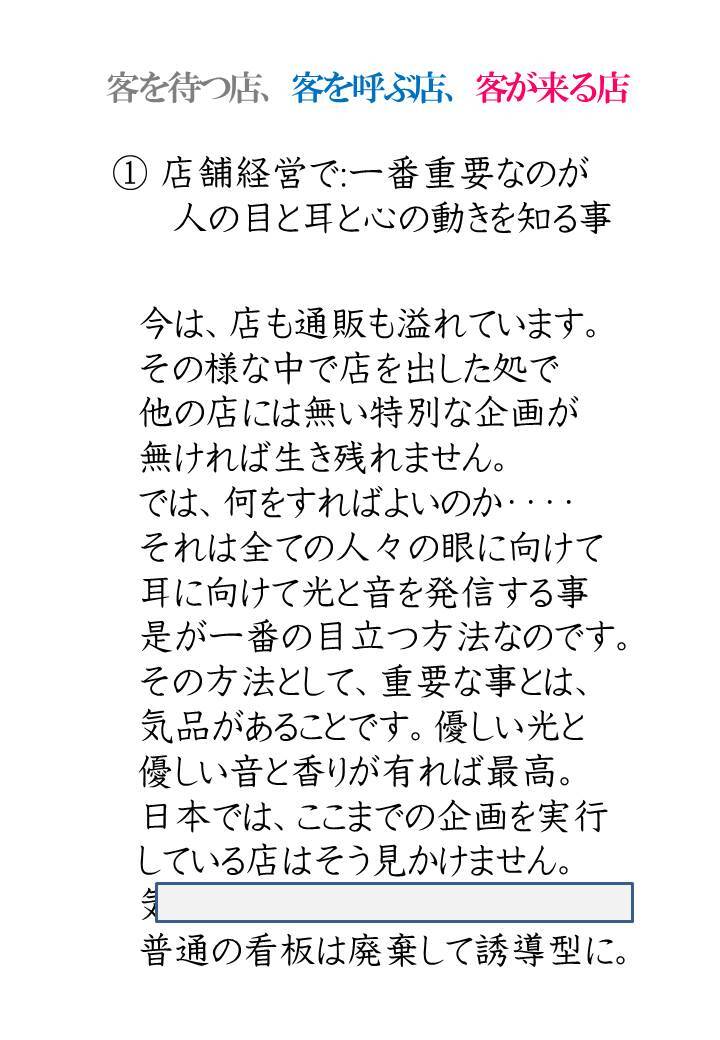 客を待つ店、客を呼ぶ店、客が来る店
① 店舗経営で:一番重要なのが
人の目と耳と心の動きを知る事
今は、店も通販も溢れています。
その様な中で店を出した処で
他の店には無い特別な企画が
無ければ生き残れません。
では、何をすればよいのか････
それは全ての人々の眼に向けて
耳に向けて光と音を発信する事
是が一番の目立つ方法なのです。
その方法として、重要な事とは、
気品があることです。優しい光と
優しい音と香りが有れば最高。
日本では、ここまでの企画を実行
している店はそう見かけません。
普通の看板は廃棄して誘導型に。